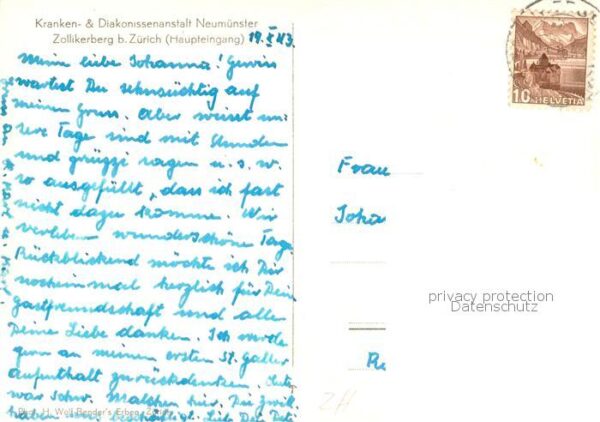 Kranken- & Diakonissenanstalt Neumünster
Zollikerberg b. Zürich (Haupteingang)
19. X 43.
Meine liebe Johanna! Gewiss
wartest Du sehnsüchtig auf
meinen Gruss. Aber weisst un-
sere Tage sind mit Stunden
und grüezi sagen u.s.w.
so ausgefüllt, dass ich fast
nicht dazu komme. Wir
verleben wunderschöne Tage
Rückblickend möchte ich Dir
nocheinmal herzlich für Dein
Gastfreundschaft und alle
Deine Liebe danken. Ich werde
gern an meinen ersten St. Galler
aufenthalt zurückdenken.
war Schw. Malchen hier. Die
haben uns
Phot. H. Wolf-Bender's Erben, Zürich
10 HELVETIA
Frau
Joha
privacy protection
Datenschutz
ZH